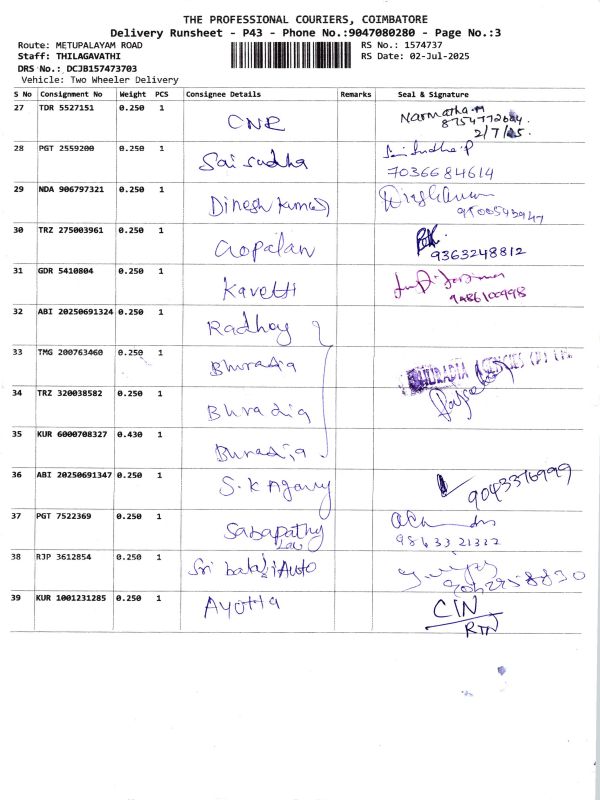 THE PROFESSIONAL COURIERS, COIMBATORE
Delivery Runsheet - P43 - Phone No.:9047080280 - Page No.:3
Route: METUPALAYAM ROAD RS No.: 1574737
Staff: THILAGAVATHI RS Date: 02-Jul-2025
DRS No.: DCJB157473703
Vehicle: Two Wheeler Delivery
S No Consignment No Weight PCS Consignee Details Remarks Seal & Signature
27 TDR 5527151 0.250 1 CNR Narmatha.M
8754772604
2/7/25.
28 PGT 2559200 0.250 1 Sai sudha
7036684614
29 NDA 906797321 0.250 1 Dinesh kumar
30 TRZ 275003961 0.250 1 Gopalan
9363248812
31 GDR 5410804 0.250 1 Kavetti
9486100998
32 ABI 20250691324 0.250 1 Radhoy
33 TMG 200763460 0.250 1 Bhuradia BHURADIA AGENCIES (P) LTD
34 TRZ 320038582 0.250 1 Bhuradia
35 KUR 6000708327 0.430 1 Buradia
36 ABI 20250691347 0.250 1 S.K Agency 9043376999
37 PGT 7522369 0.250 1 Sabapathy
9863321322
38 RJP 3612854 0.250 1 Sri balaji Auto
39 KUR 1001231285 0.250 1 Ayotta CIN
RTN